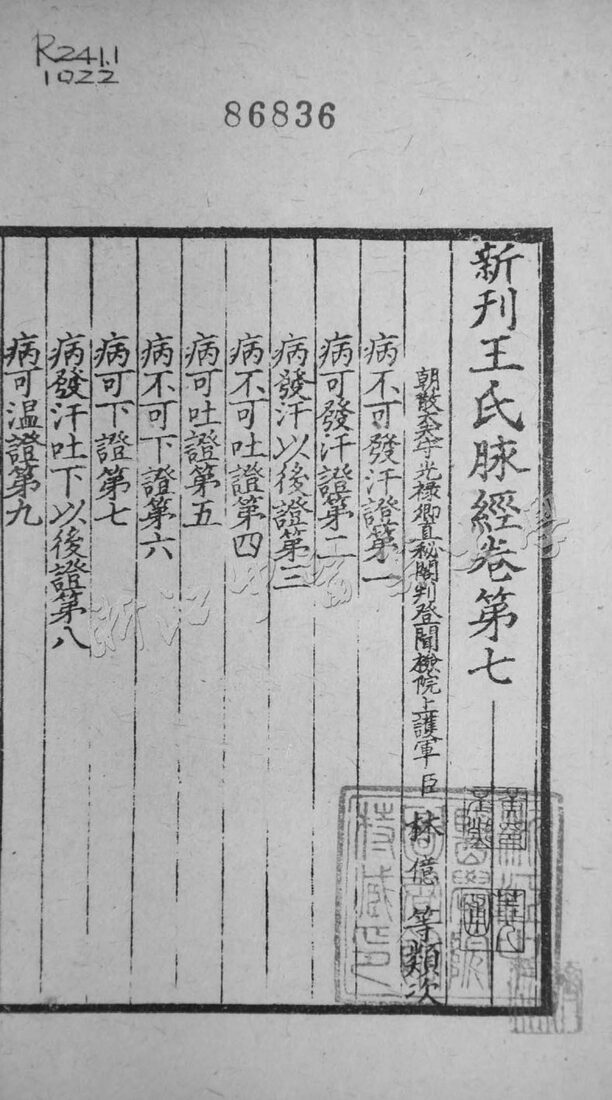 R241.1
1022
86836
新刊王氏脉經卷第七
朝散大夫守光禄卿直秘閣判登聞檢院上護軍臣林億等類次
病不可發汗證第一
病可發汗證第二
病發汗以後證第三
病不可吐證第四
病可吐證第五
病不可下證第六
病可下證第七
病發汗吐下以後證第八
病可温證第九